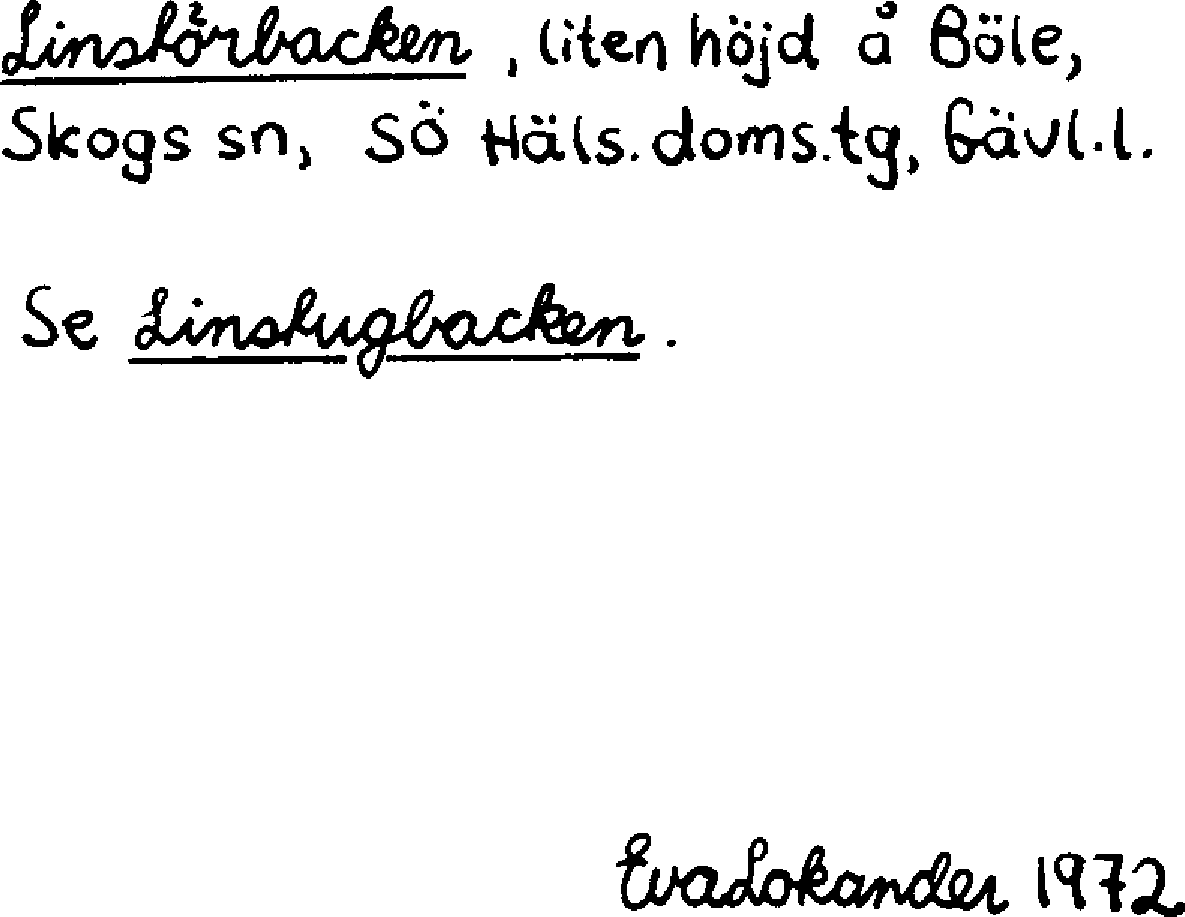 Linskörbacken, liten höjd å Böle,
Skogs sn, SÖ Häls. doms.tg, Gävl.l.
Se Linskugbacken.
Eva Lokander 1972